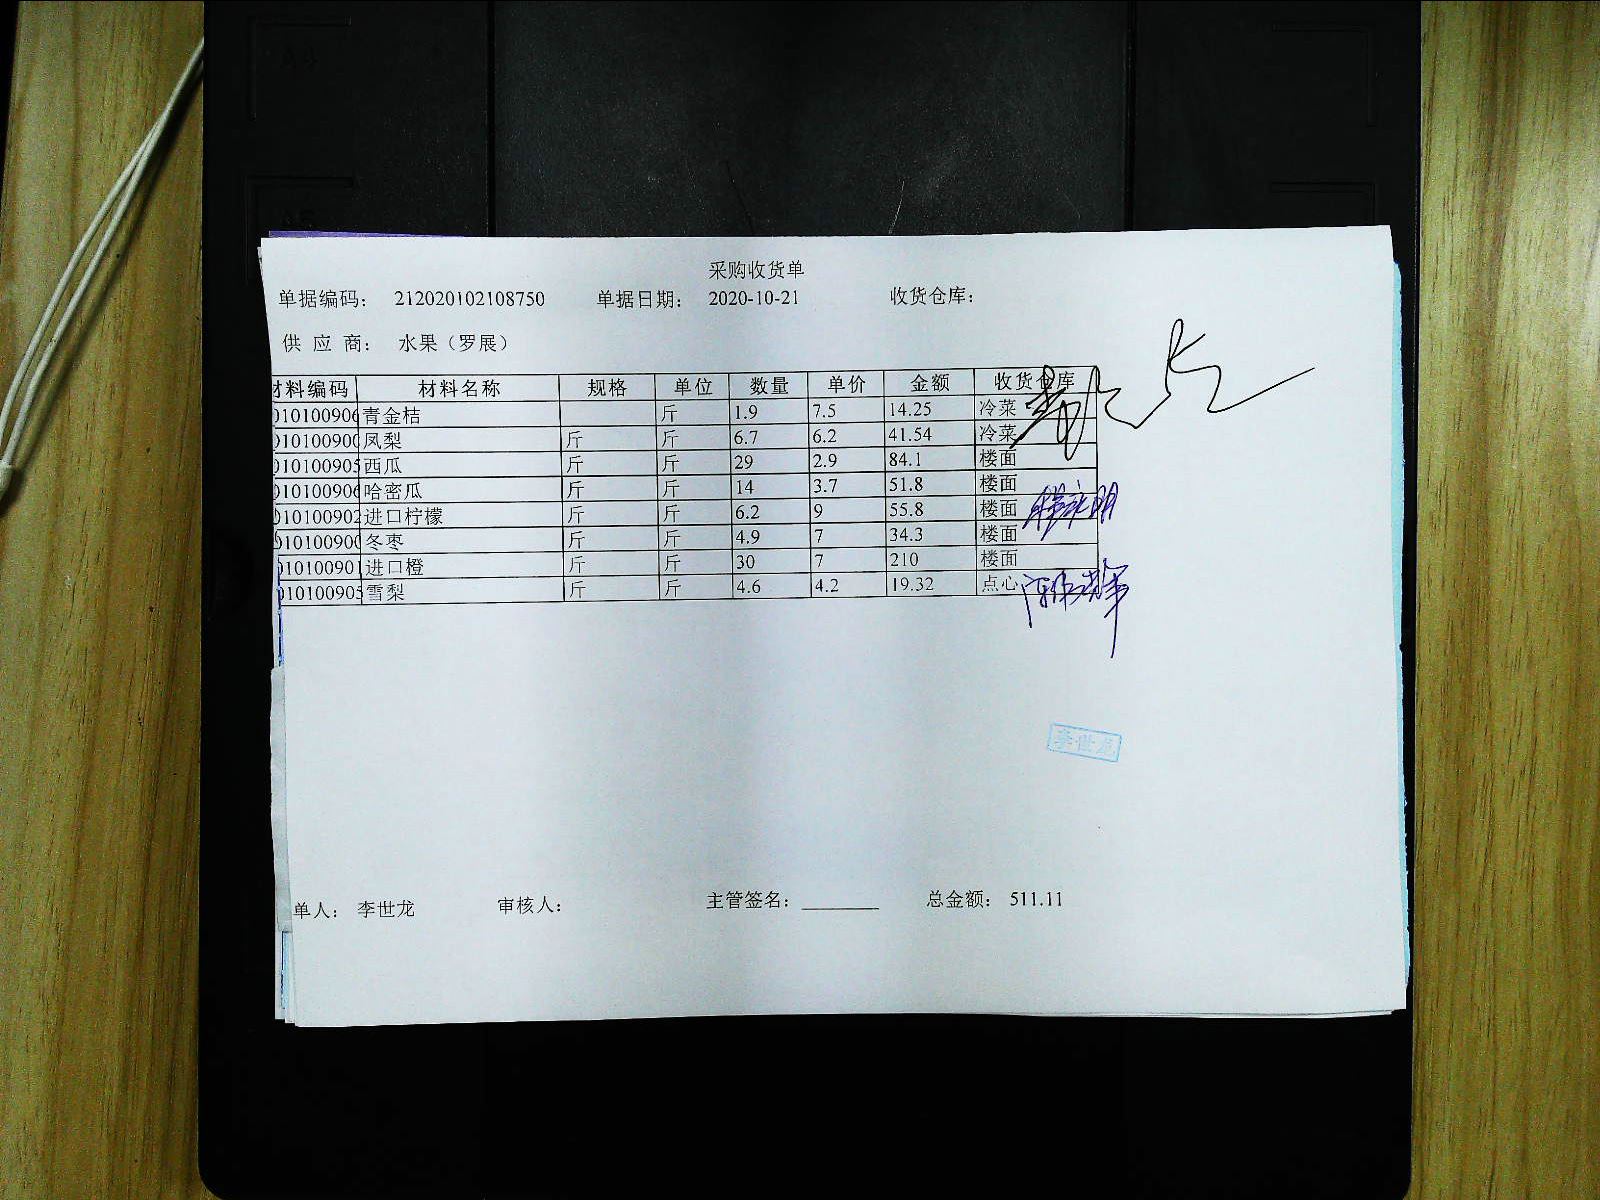 采购收货单
单据编码： 212020102108750 单据日期： 2020-10-21 收货仓库：
供 应 商： 水果（罗展）
材料编码 材料名称 规格 单位 数量 单价 金额 收货仓库
010100906 青金桔 斤 1.9 7.5 14.25 冷菜
010100900 凤梨 斤 斤 6.7 6.2 41.54 冷菜
010100905 西瓜 斤 斤 29 2.9 84.1 楼面
010100906 哈密瓜 斤 斤 14 3.7 51.8 楼面
010100902 进口柠檬 斤 斤 6.2 9 55.8 楼面
010100900 冬枣 斤 斤 4.9 7 34.3 楼面
010100901 进口橙 斤 斤 30 7 210 楼面
010100905 雪梨 斤 斤 4.6 4.2 19.32 点心
李世龙
单人： 李世龙 审核人： 主管签名： 总金额： 511.11